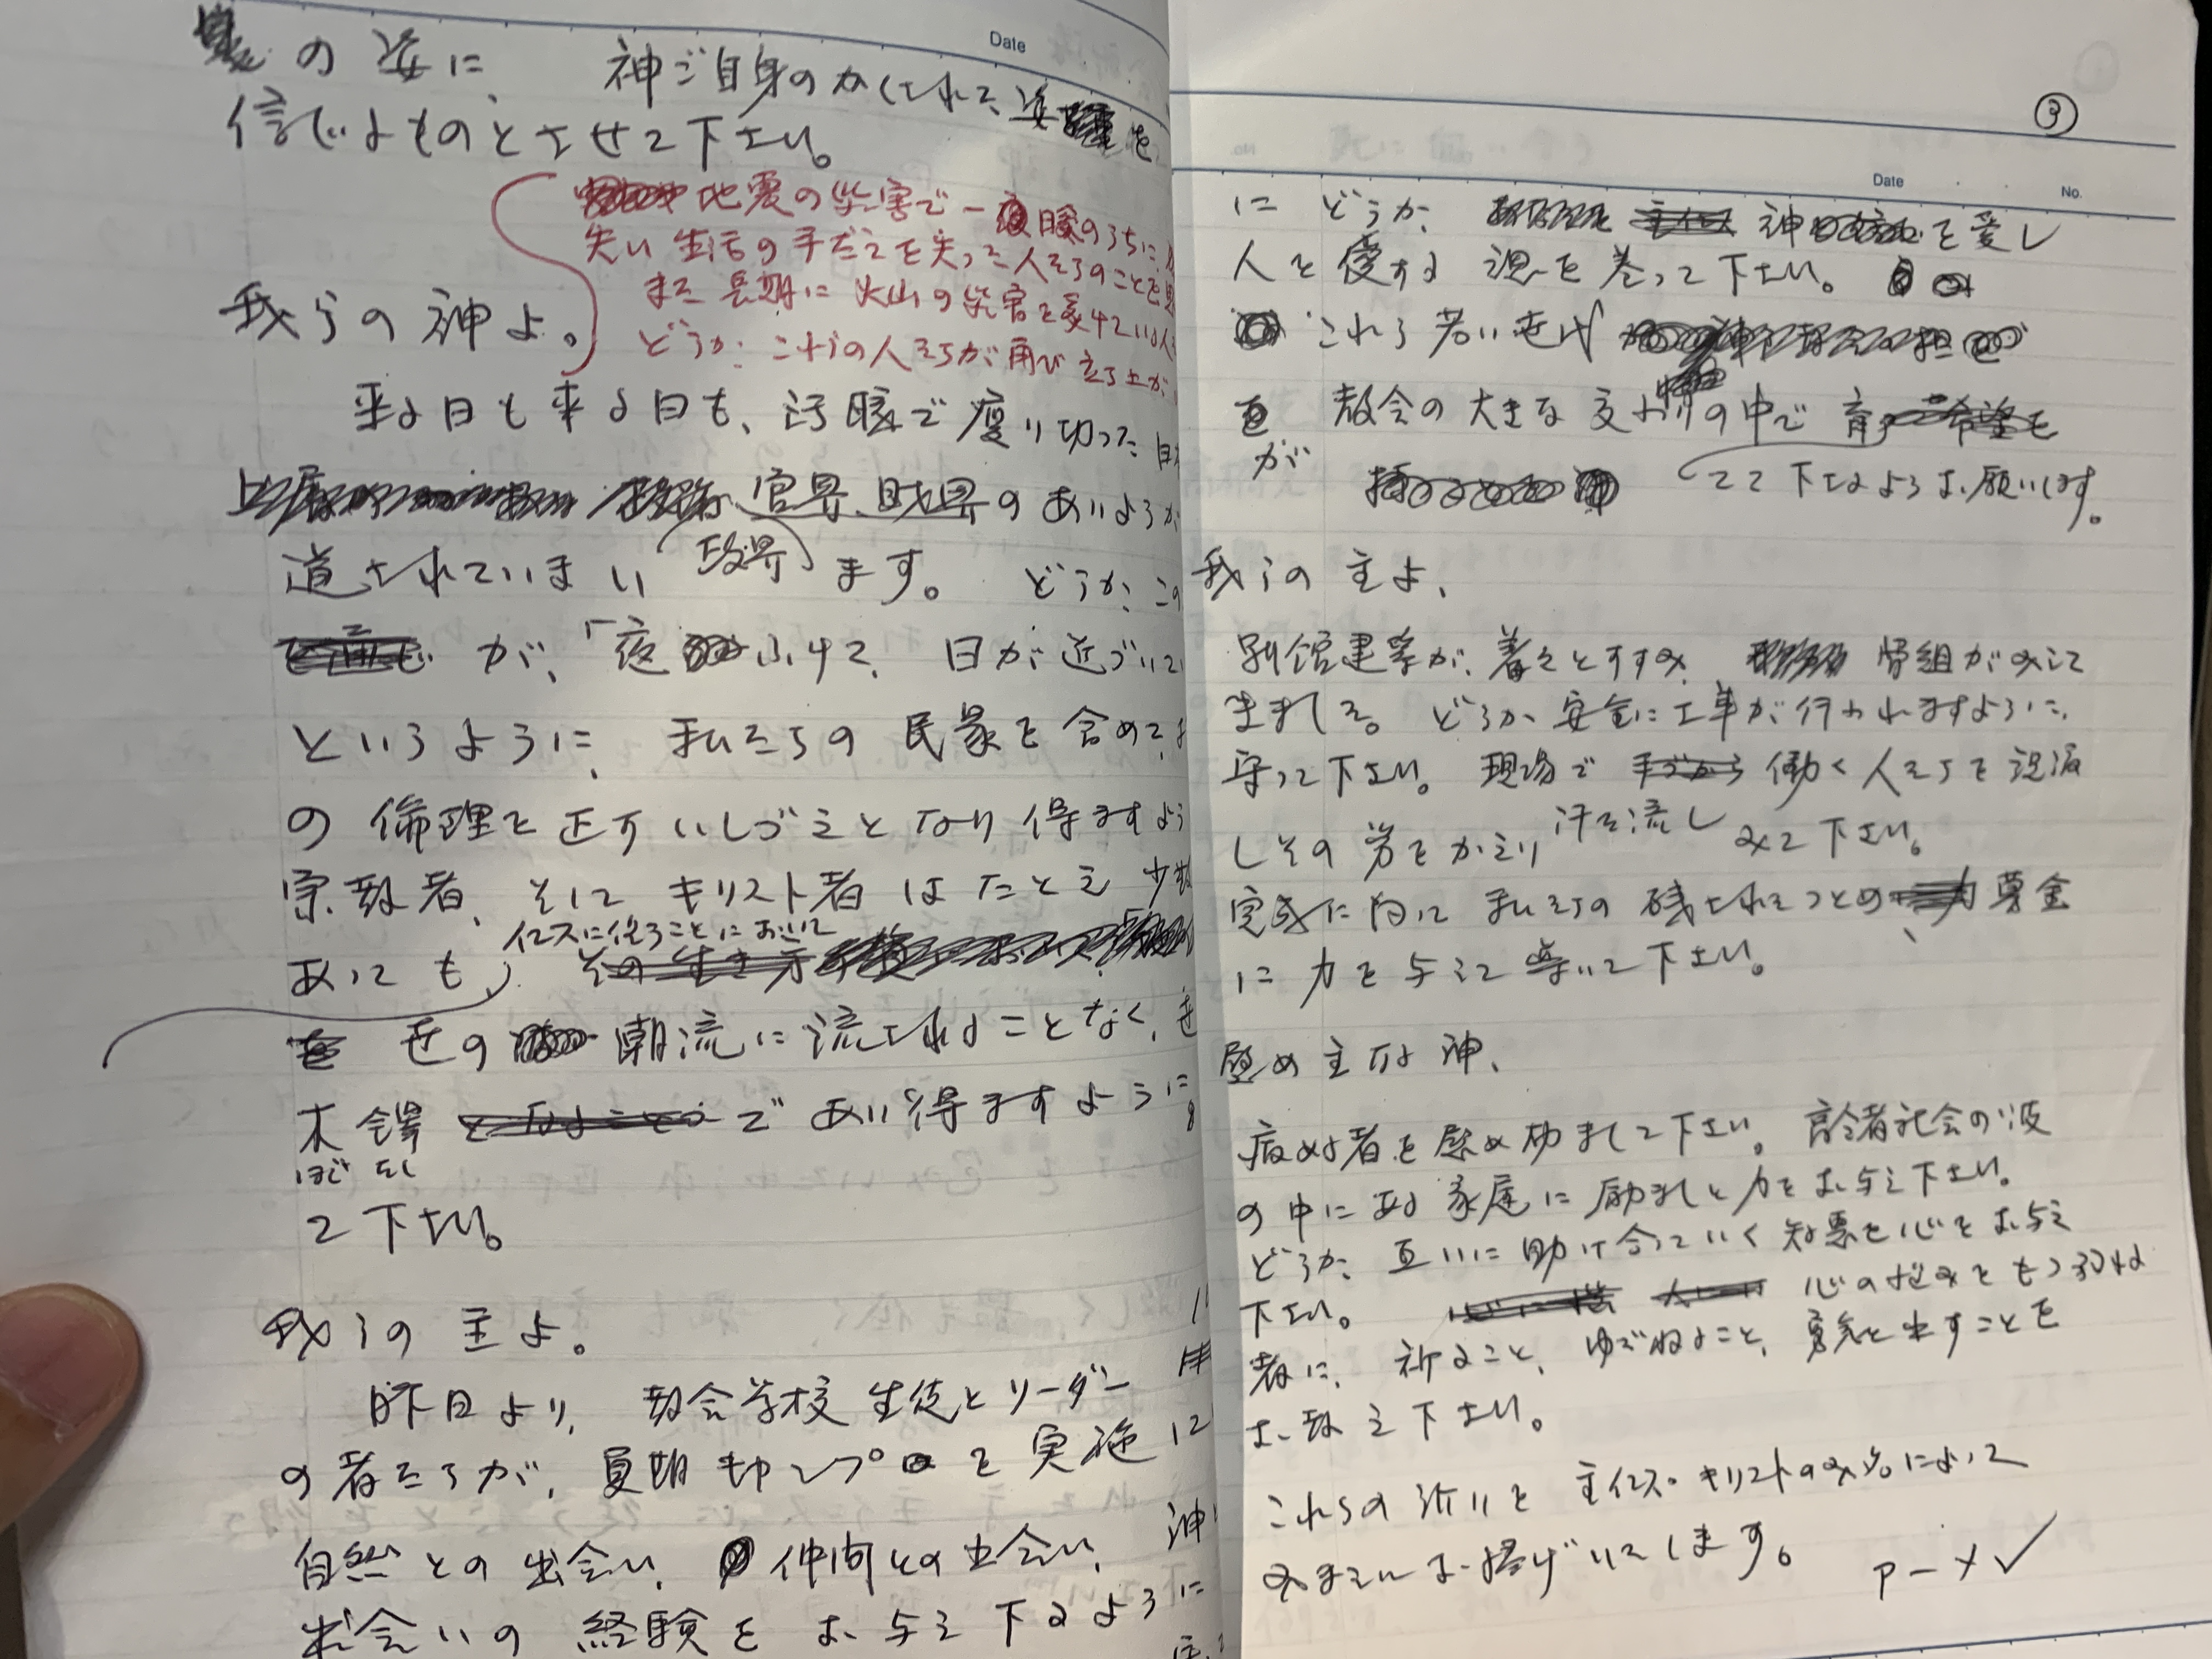 の姿に、神ご自身のかくされた姿を
信じるものとさせて下さい。
地震の災害で一瞬のうちに
失い生活の手だてを失った人たちのことを
また長期に火山の災害を受けている人
どうか、これらの人たちが再び立ち上が
我らの神よ。
来る日も来る日も、汚職で腐り切った
官界、財界のありようが
政界
道されています。どうか、この
が、「夜はふけて、日が近づいて
というように、私たちの民家を含めて、
の倫理を正すいしずえとなり得ますよう
宗教者、そしてキリスト者はたとえ少数
イエスに従うことにおいて
あっても、
世の潮流に流されることなく、世
木鐸であり得ますように
ぼくたく
て下さい。
我らの主よ。
昨日より、教会学校生徒とリーダー
の者たちが、夏期キャンプを実施
自然との出会い、仲間との出会い、神
出会いの経験をお与え下るように
Date
③
Date
No.
にどうか、神を愛し
人を愛する思を養って下さい。
これら若い世代
が教会の大きな交わりの中で育
てて下さるようお願いします。
我らの主よ、
別館建築が、着々とすすみ、骨組がみえて
きました。どうか安全に工事が行われますように、
守って下さい。現場で働く人たちを祝福
しその労をかえりみて下さい。
汗を流し
完成に向けて私たちの残されたつとめ、募金
に力を与えて導いて下さい。
慰め主なる神、
病める者を慰め励まして下さい。高令者社会の波
の中にある家庭に励ましと力をお与え下さい。
どうか、互いに助け合っていく知恵と心をお与え
下さい。心の悩みをもつ
者に、祈ること、ゆだねること、勇気を出すことを
お教え下さい。
これらの祈りを主イエス・キリストのみ名によって
みまえにお捧げいたします。アーメン